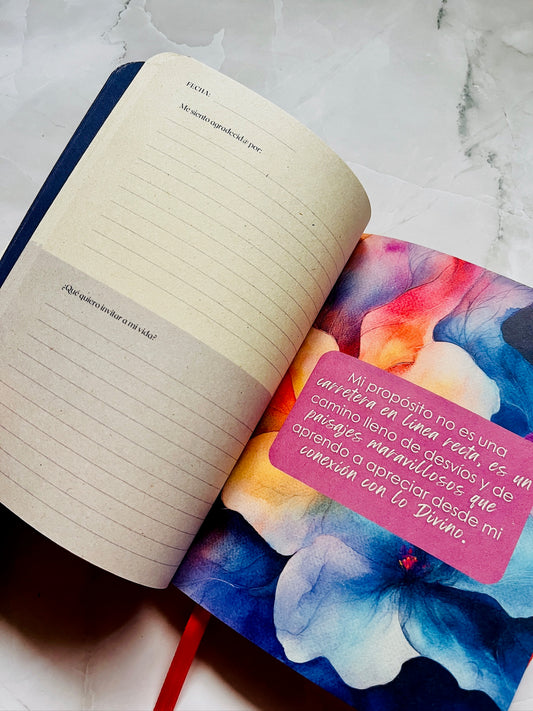 FECHA:
Me siento agradecid@ por:
¿Qué quiero invitar a mi vida?
Mi propósito no es una
carretera en línea recta, es un
camino lleno de desvíos y de
paisajes maravillosos que
aprendo a apreciar desde mi
conexión con lo Divino.